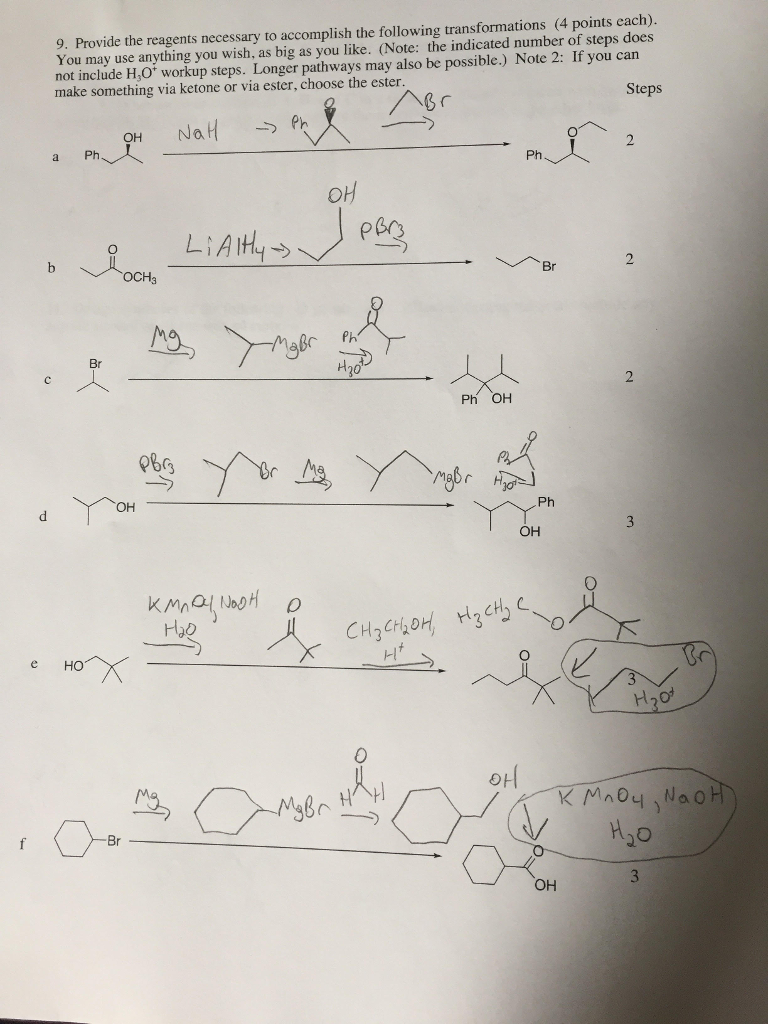 9. Provide the reagents necessary to accomplish the following transformations (4 points each).
You may use anything you wish, as big as you like. (Note: the indicated number of steps does
not include H₃O⁺ workup steps. Longer pathways may also be possible.) Note 2: If you can
make something via ketone or via ester, choose the ester.
Steps
a Ph OH NaH → Ph O Br → Ph O 2
b O OCH₃ LiAlH₄ → OH PBr₃ → Br 2
c Br Mg → MgBr Ph O H₃O⁺ → Ph OH 2
d OH PBr₃ → Br Mg → MgBr Ph O H₃O⁺ → Ph OH 3
e HO KMnO₄, NaOH H₂O → O CH₃CH₂OH, H⁺ → H₃CH₂C O O
O Br 3 H₃O⁺
f Br Mg → MgBr H O H → OH KMnO₄, NaOH H₂O
O OH 3